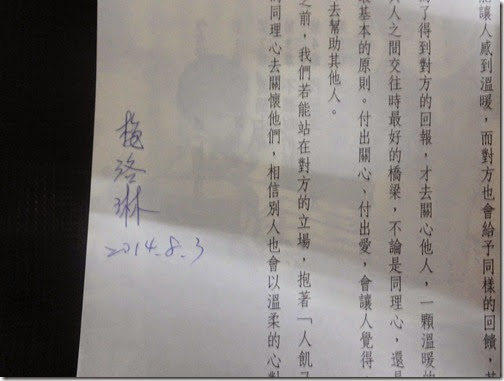 能讓人感到溫暖，而對方也會給予同樣的回饋，
了得到對方的回報，才去關心他人，一顆溫暖的
人之間交往時最好的橋梁，不論是同理心，還是
最基本的原則。付出關心、付出愛，會讓人覺得
去幫助其他人。
之前，我們若能站在對方的立場，抱著「人飢己
同理心去關懷他們，相信別人也會以溫柔的心對
梅洛琳
2014.8.3